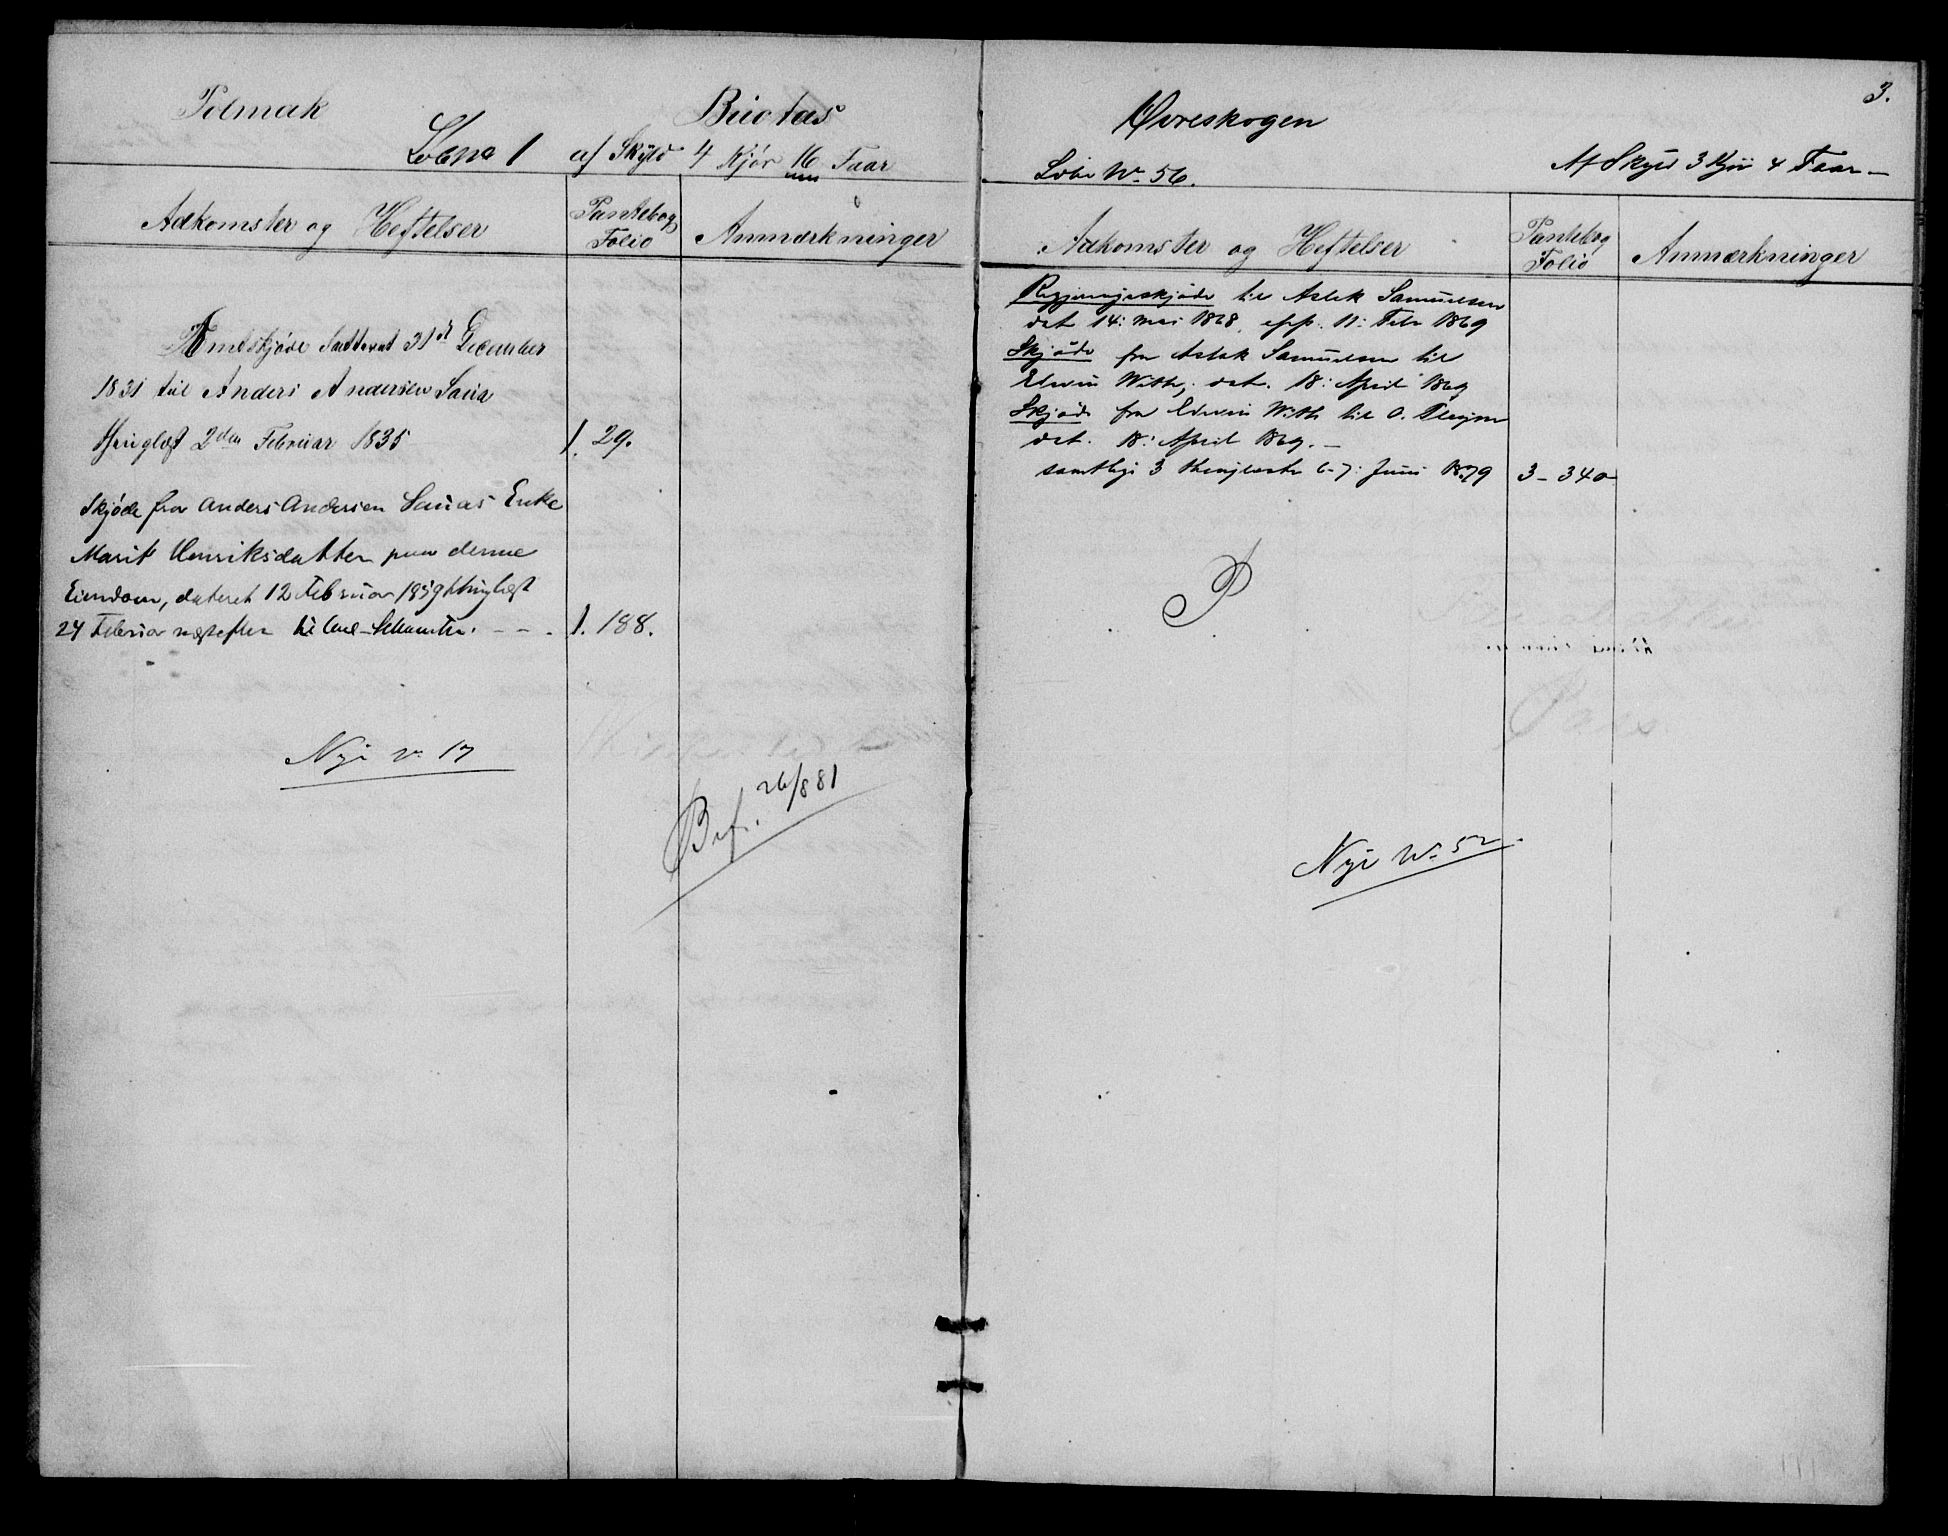 Polmak Buotas
Löbno 1 af Skyld 4 Kjør 16 Faar
Adkomster og Heftelser
Pantebog
Folio
Anmærkninger
Amtskjøde datteret 31d December
1831 til Anders Andersen Saua
thinglæst 2den Februar 1835 1. 29.
Skjøde fra Anders Andersen Sauas Enke
Marit Henriksdatter paa denne
Eiendom, dateret 12 Februar 1859 thinglæst
24 Februar næstefter til Carl Schanche. - - . 1. 188.
Nyt No 17
Bef. 26/8 81
3.
Øvreskogen
Löbe No 56. Af Skyld 3 Kjør 4 Faar -
Adkomster og Heftelser
Pantebog
Folio
Anmærkninger
Regjeringsskjøde til Aslak Samuelsen
dat 14: Mai 1868, exp. 11: Febr 1869
Skjöde fra Aslak Samuelsen til
Edwin With, dat. 18: April 1869
Skjöde fra Edwin With til O.
dat. 18: April 1869. -
samtlige 3 thinglæste 6-7: Juni 1879 3 - 340
P
Nyt No 52.